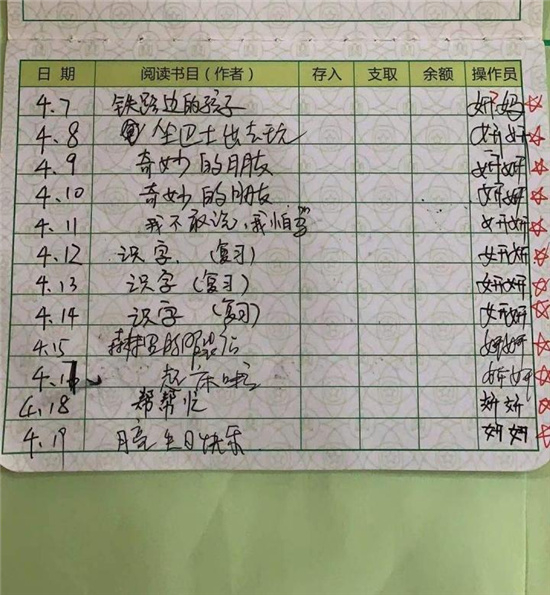 日 期 阅读书目（作者） 存入 支取 余额 操作员
4.7 铁路边的孩子 妍妈
4.8 坐巴士出去玩 妍妍
4.9 奇妙的朋友 妍妍
4.10 奇妙的朋友 妍妍
4.11 我不敢说,我怕 妍妍
4.12 识字 (复习) 妍妍
4.13 识字 (复习) 妍妍
4.14 识字 (复习) 妍妍
4.15 森林里的 妍妍
4. 起床啦 妍妍
4.18 帮帮忙 妍妍
4.19 生日快乐 妍妍